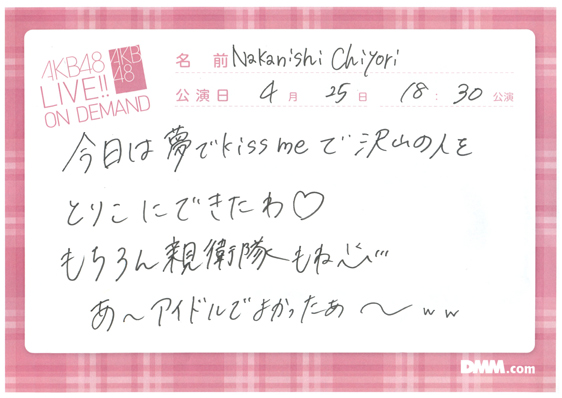 AKB48
LIVE!!
ON DEMAND
AKB
48
名 前 Nakanishi Chiyori
公演日 4 月 25 日 18 : 30 公演
今日は夢でkiss meで沢山の人を
とりこにできたわ♡
もちろん親衛隊もね
あ〜アイドルでよかったあ〜ww
DMM.com